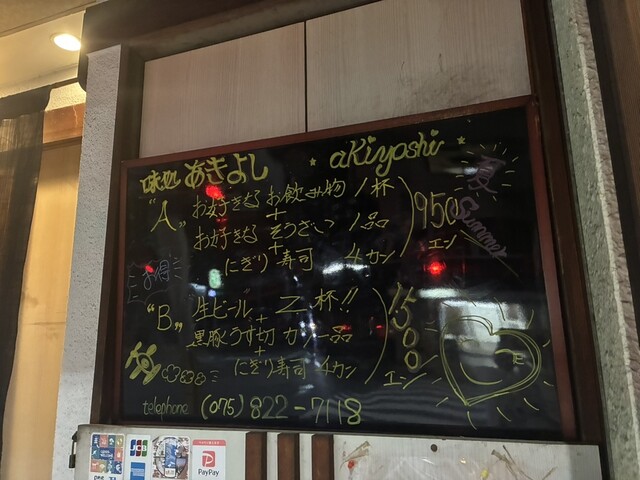 味処 あきよし ★ aKiyoshi ★
夏
Summer
"A" お好きな お飲み物 1杯
+
お好きな そうざい 1品
+
にぎり寿司 4カン
950
エン
お得
"B" 生ビール 2杯!!
+
黒豚うす切カツ一品
+
にぎり寿司 4カン
1,500
エン
telephone (075) 822-7118
JCB
PayPay